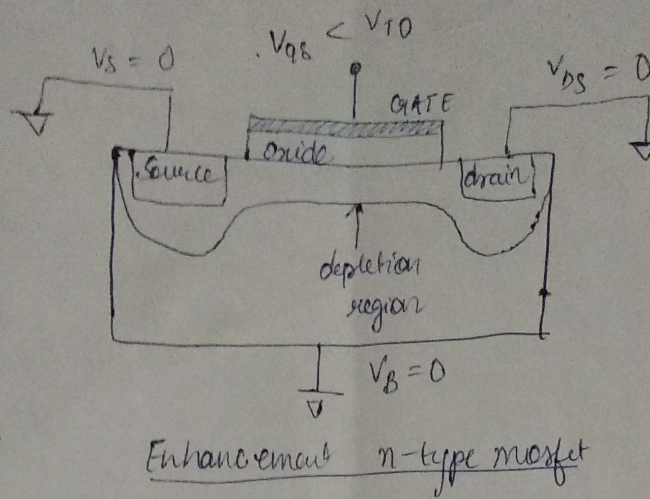 V_GS < V_T0
V_S = 0
V_DS = 0
GATE
Oxide
Source
drain
depletion
region
V_B = 0
Enhancement n-type mosfet